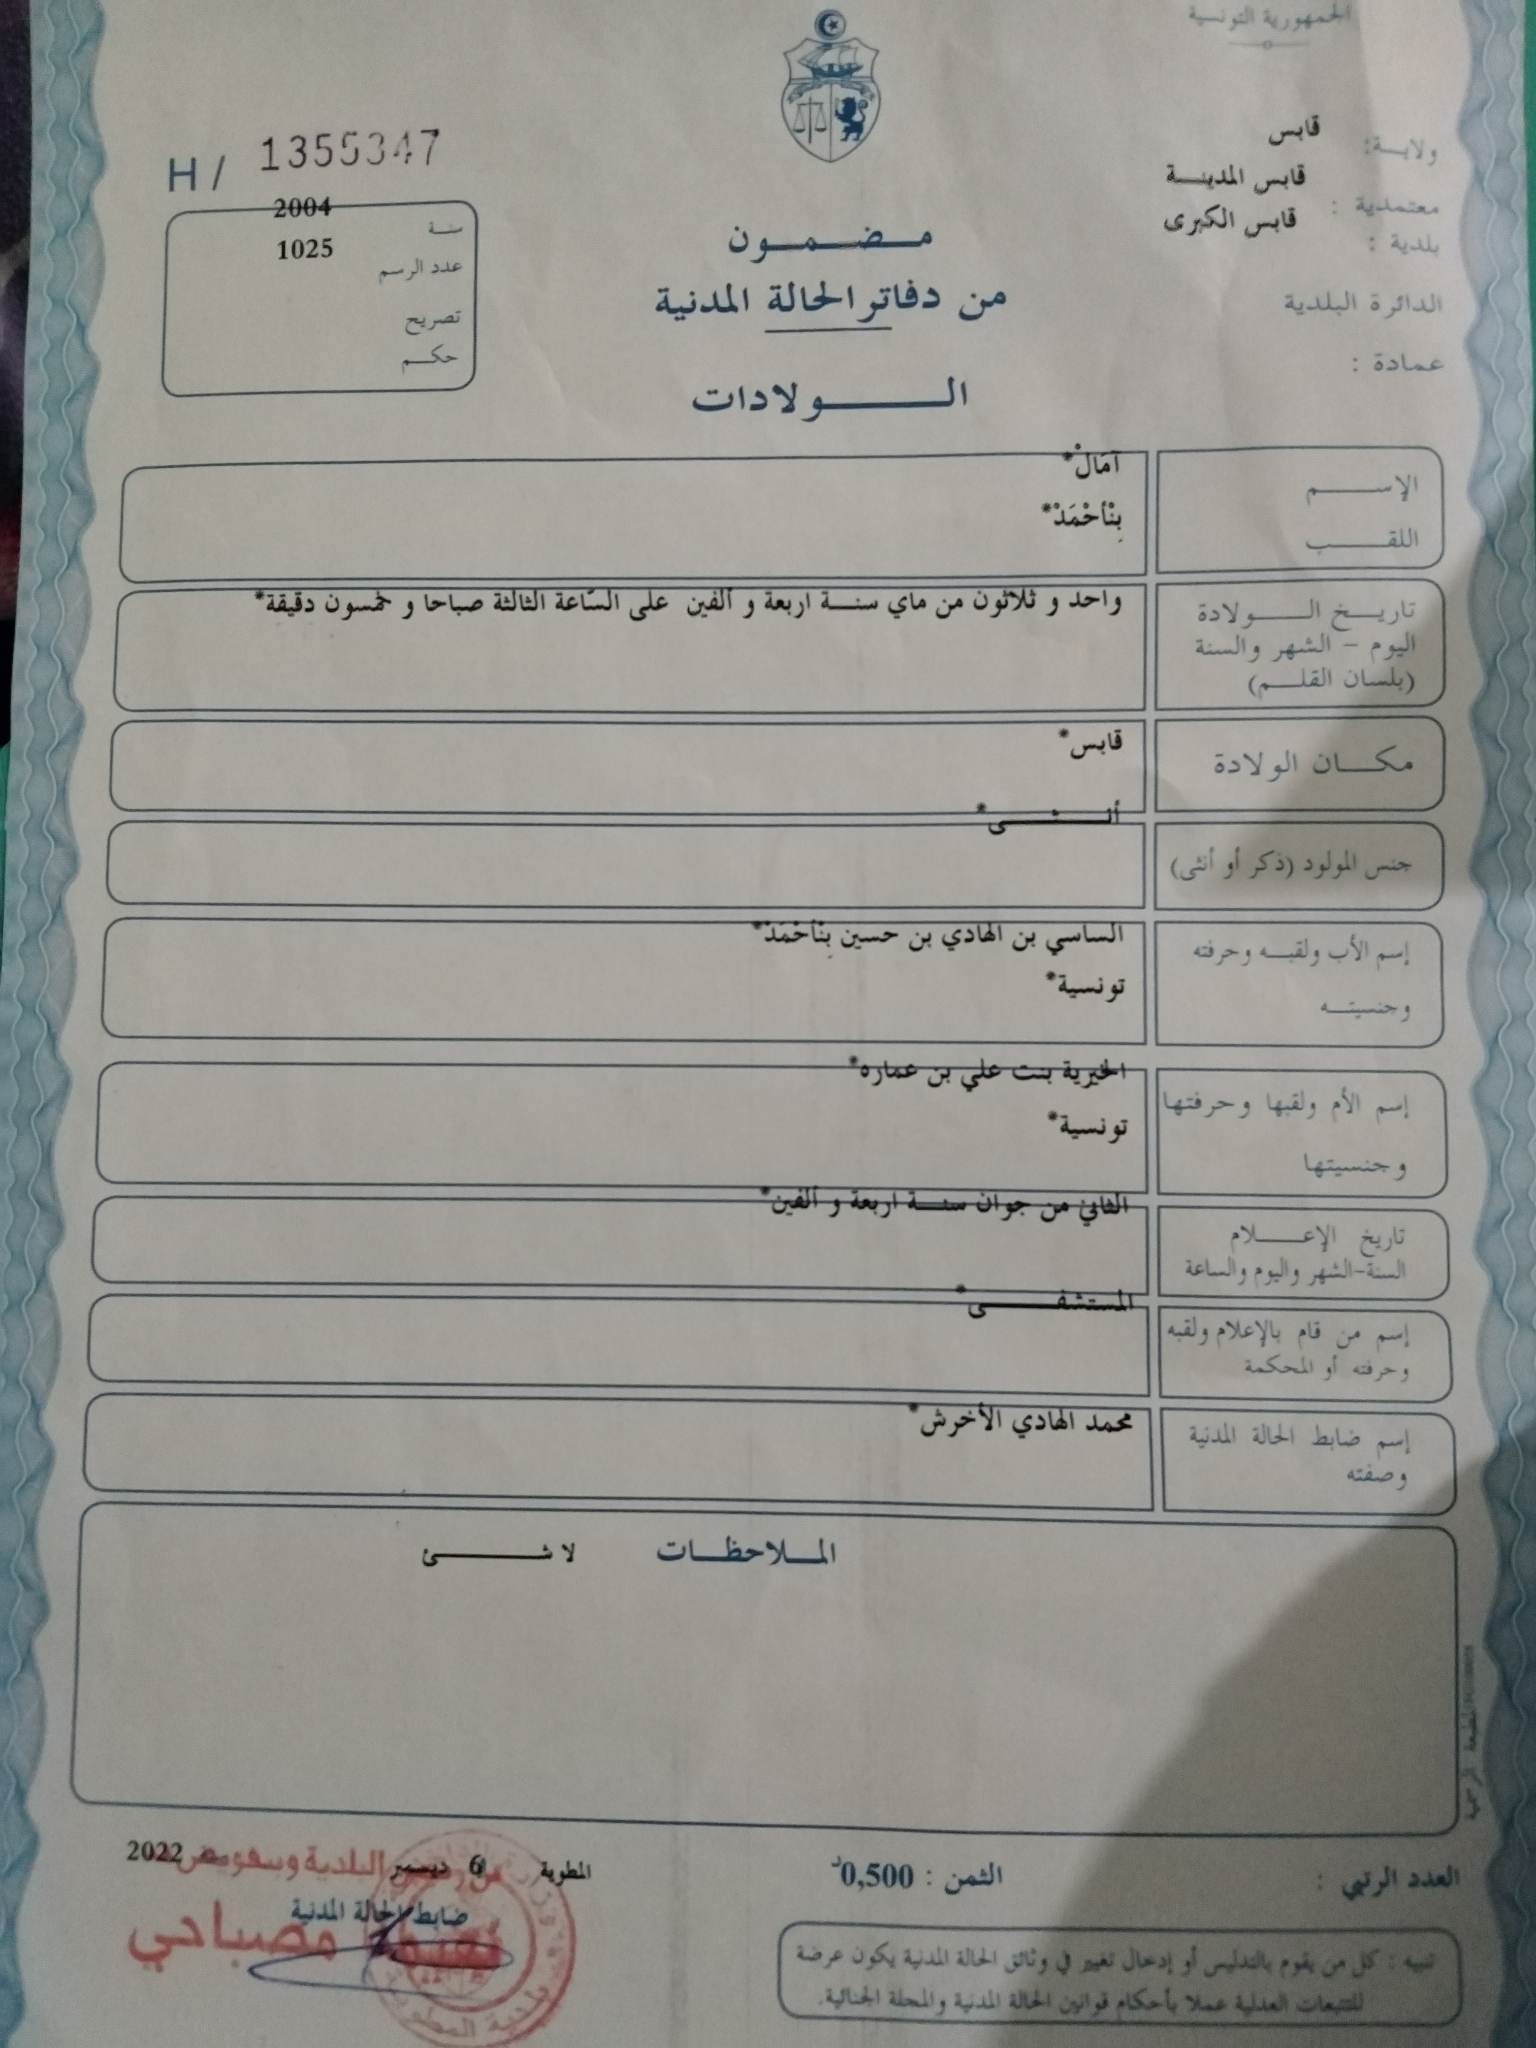 الجمهورية التونسية
ولاية: قابس
معتمدية : قابس المدينة
بلدية : قابس الكبرى
الدائرة البلدية
عمادة :
H / 1355347
سنة 2004
عدد الرسم 1025
تصريح
حكم
مضمون
من دفاتر الحالة المدنية
الولادات
الإسم آمَالْ*
اللقب بِنْأحْمَدْ*
تاريخ الولادة
اليوم - الشهر والسنة
(بلسان القلم)
واحد و ثلاثون من ماي سنة اربعة و ألفين على السّاعة الثالثة صباحا و خمسون دقيقة*
مكان الولادة قابس*
جنس المولود (ذكر أو أنثى) أنثى*
إسم الأب ولقبه وحرفته الساسي بن الهادي بن حسين بِنْأحْمَدْ*
وجنسيته تونسية*
إسم الأم ولقبها وحرفتها الخيرية بنت علي بن عماره*
وجنسيتها تونسية*
تاريخ الإعلام
السنة-الشهر واليوم والساعة
الثاني من جوان سنة اربعة و ألفين*
إسم من قام بالإعلام ولقبه
وحرفته أو المحكمة
المستشفى*
إسم ضابط الحالة المدنية
وصفته
محمد الهادي الأخرش*
الملاحظات لا شئ
المطبعة الرسمية
العدد الرتبي :
الثمن : 0,500د
المطوية 6 ديسمبر 2022
ضابط الحالة المدنية
البلدية
مصباحي
بلدية المطوية
تنبيه : كل من يقوم بالتدليس أو إدخال تغيير في وثائق الحالة المدنية يكون عرضة
للتتبعات العدلية عملا بأحكام قوانين الحالة المدنية والمجلة الجنائية.